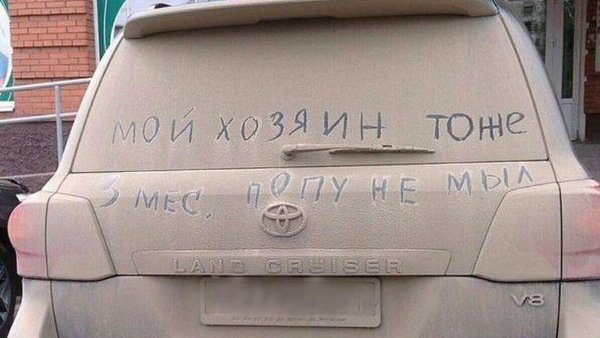 мой хозяин тоже
3 мес. попу не мыл
LAND CRUISER
V8